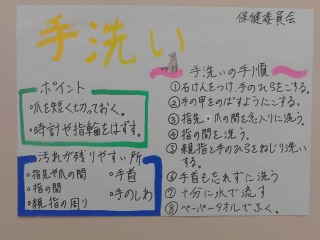 保健委員会
手洗い
ポイント
・爪を短く切っておく。
・時計や指輪をはずす。
汚れが残りやすい所
・指先や爪の間
・指の間
・親指の周り
・手首
・手のしわ
手洗いの手順
①石けんをつけ、手のひらをこする。
②手の甲をのばすようにこする。
③指先・爪の間を念入りに洗う。
④指の間を洗う。
⑤親指と手のひらをねじり洗い
する。
⑥手首も忘れずに洗う
⑦十分に水で流す
⑧ペーパータオルでふく。